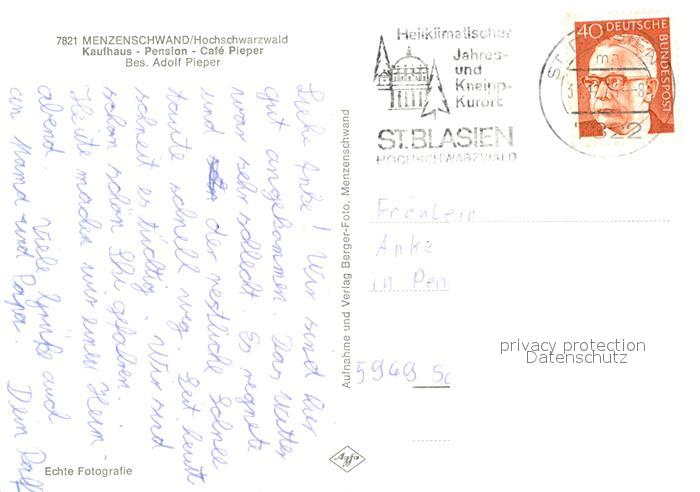 7821 MENZENSCHWAND/Hochschwarzwald
Kaufhaus - Pension - Café Pieper
Bes. Adolf Pieper
Liebe Anke! Wir sind hier
gut angekommen. Das Wetter
war sehr schlecht. Es regnete
und der restliche Schnee
taute schnell weg. Seit heute
schneit es tüchtig. Wir sind
schon schön Ski gefahren.
Heute machen wir einen Heim-
abend. Viele Grüße auch
an Mama und Papa. Dein Ralf
Echte Fotografie
Aufnahme und Verlag Berger-Foto, Menzenschwand
Agfa
Heilklimatischer
Jahres-
und
Kneipp-
Kurort
ST. BLASIEN
HOCHSCHWARZWALD
40 DEUTSCHE
BUNDESPOST
7822
Fräulein
Anke
in Pen
5949 Sc
privacy protection
Datenschutz